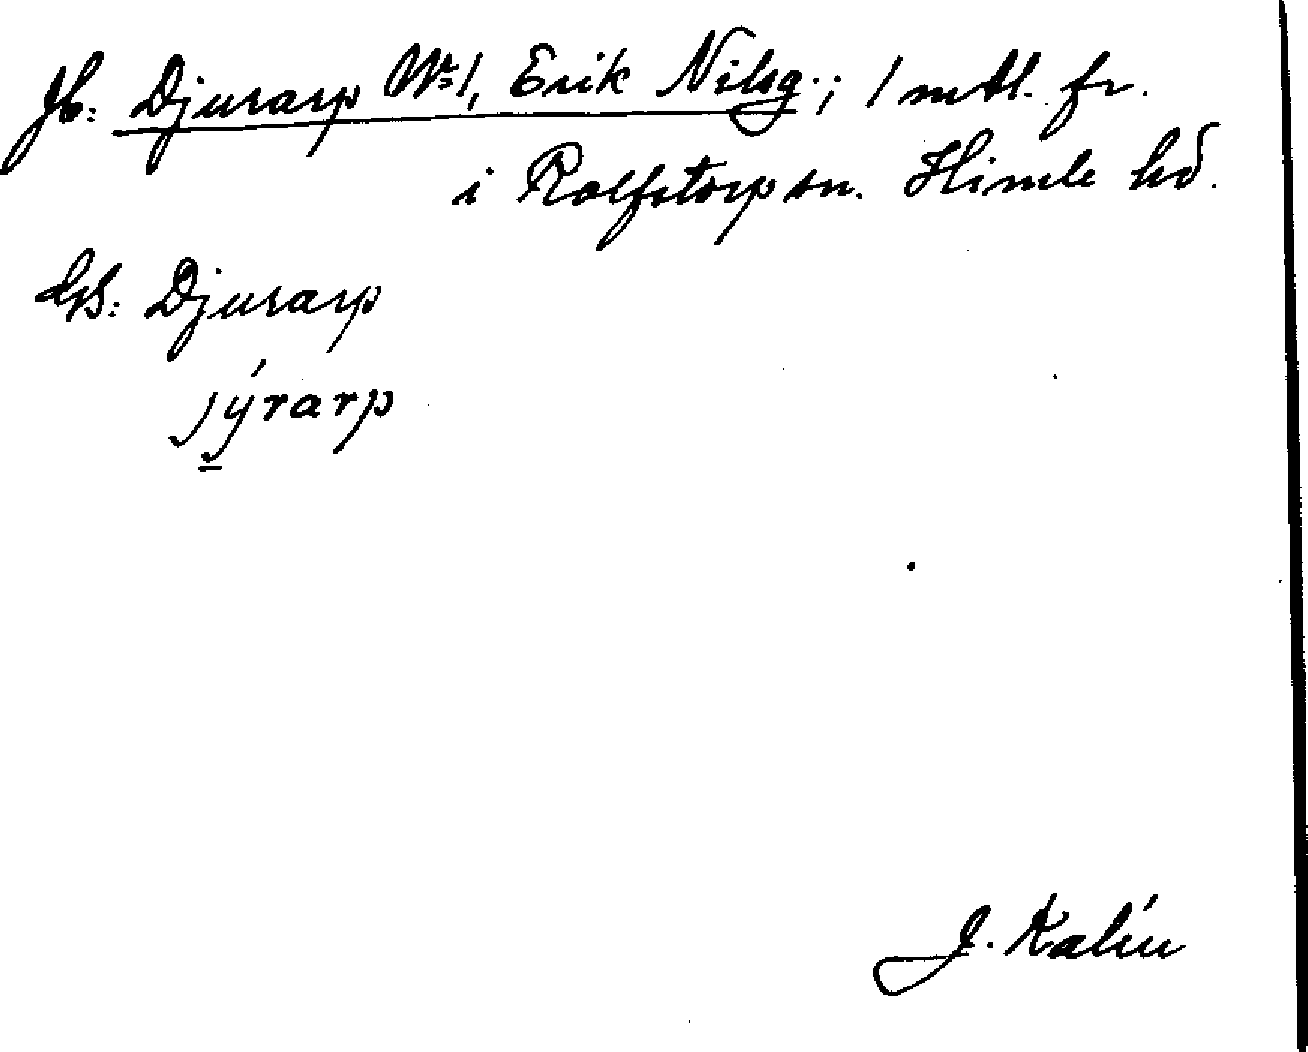 Jb: Djurarp No 1, Erik Nilsg.; 1 mtl. fr.
i Rolfstorp sn. Himle hd.
Gs: Djurarp
jýrarp
J. Kalén